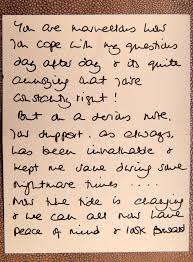 You are marvellous how
you cope with my questions
day after day & its quite
annoying that you're
constantly right!
But on a serious note,
your support, as always,
has been invaluable &
kept me sane during some
nightmare times ....
Now the tide is changing
& we can all now have
peace of mind & look forward